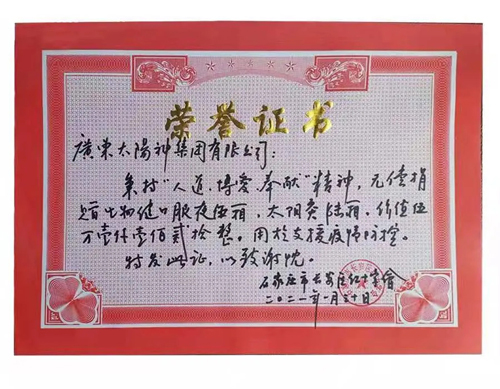 荣誉证书
廣东太陽神集团有限公司:
秉持“人道、博爱、奉献”精神,无偿捐
生物健口服液伍箱,太阳灸陆箱,价值伍
万壹仟壹佰贰拾整。用於支援疫情防控。
特发此证,以致谢忱。
石家庄市长安区红十字會
二〇二一年一月二十日